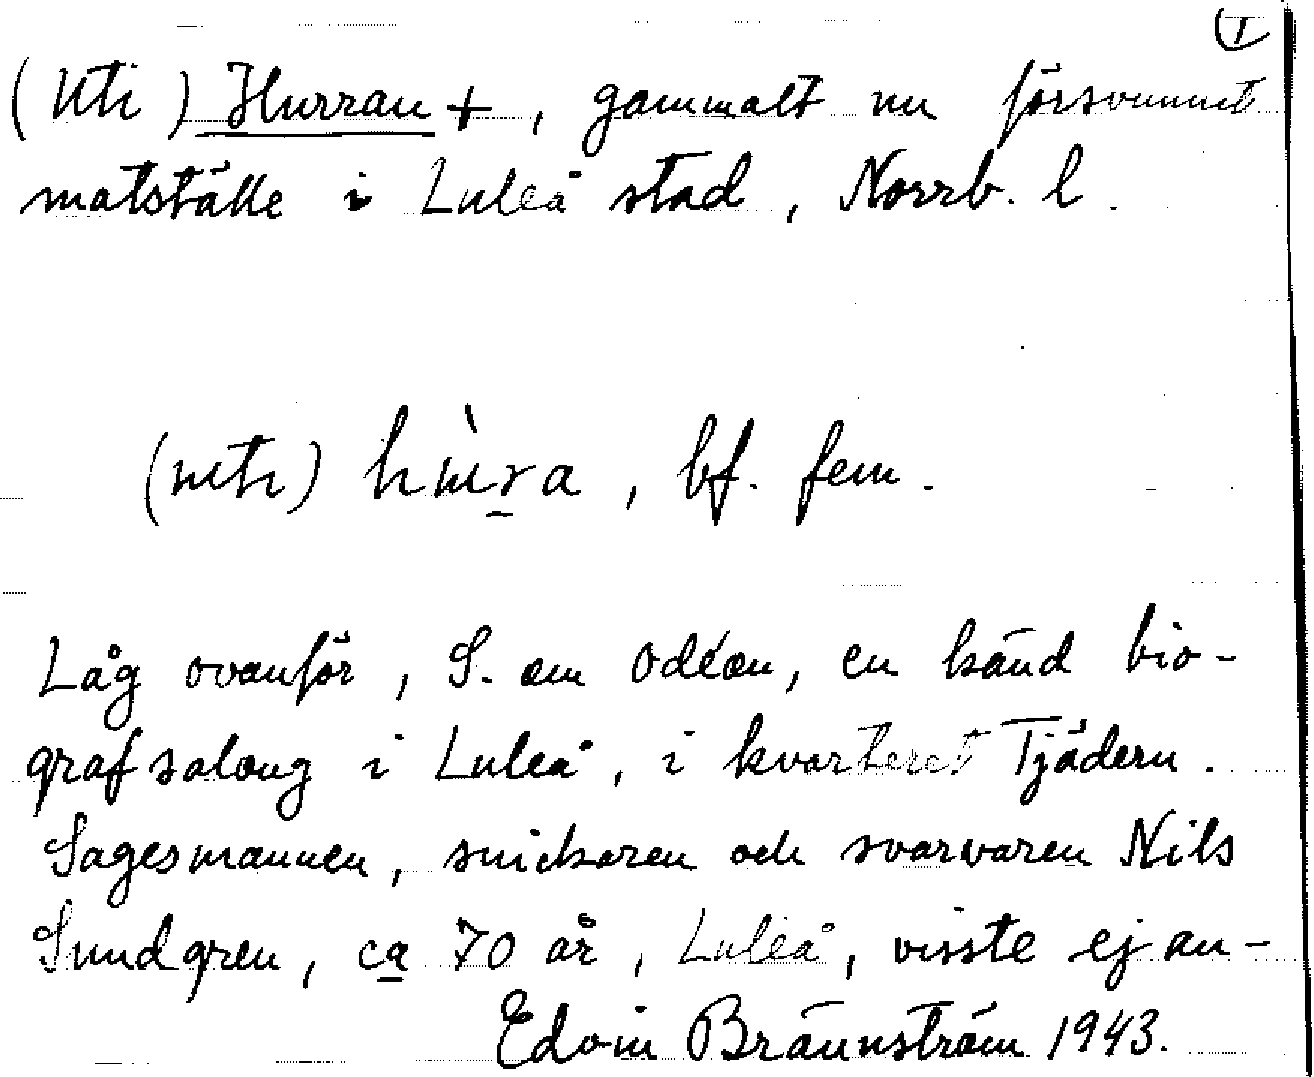 I
(Uti) Hurran +, gammalt nu försvunnet
matställe i Luleå stad, Norrb. l.
(uti) hùra, bf. fem.
Låg ovanför, S. om Odéon, en känd bio-
grafsalong i Luleå, i kvarteret Tjädern.
Sagesmannen, snickaren och svarvaren Nils
Sundgren, ca 70 år, Luleå, visste ej an-
Edvin Brännström 1943.